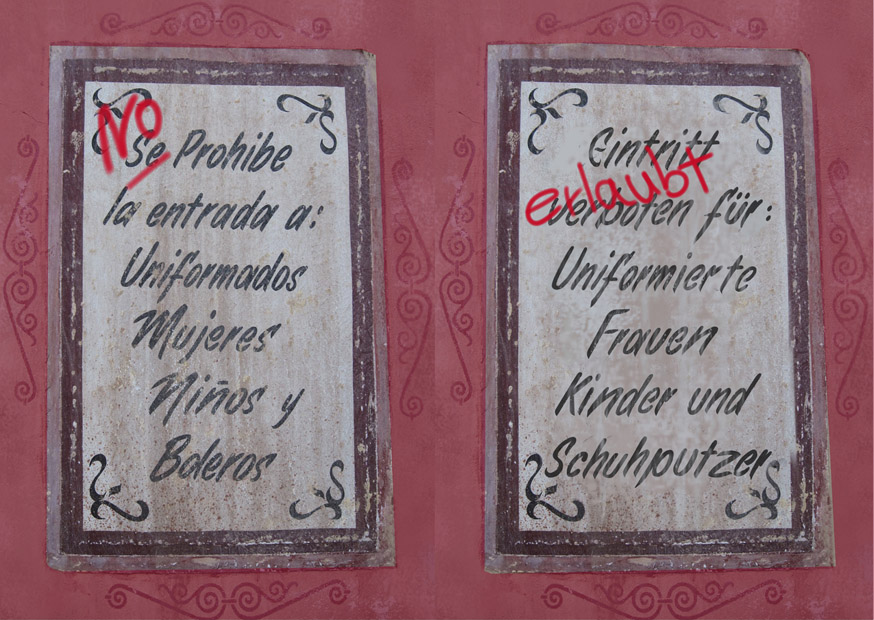 No
Se Prohibe
la entrada a:
Uniformados
Mujeres
Niños y
Boleros
Eintritt
erlaubt
verboten für:
Uniformierte
Frauen
Kinder und
Schuhputzer